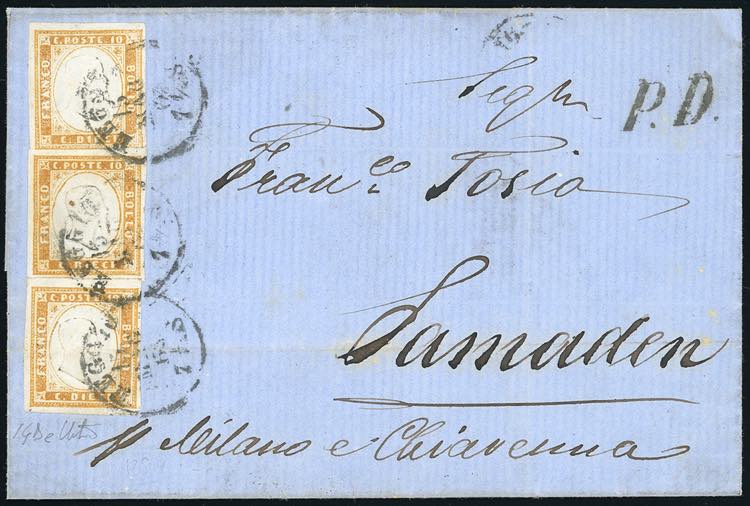 C. POSTE 10
FRANCO
BOLLO
C. DIECI
C. POSTE 10
FRANCO
BOLLO
C. DIECI
C. POSTE 10
FRANCO
BOLLO
C. DIECI
P.D.
Sigr
Franco Tosio
Samaden
p Milano e Chiavenna